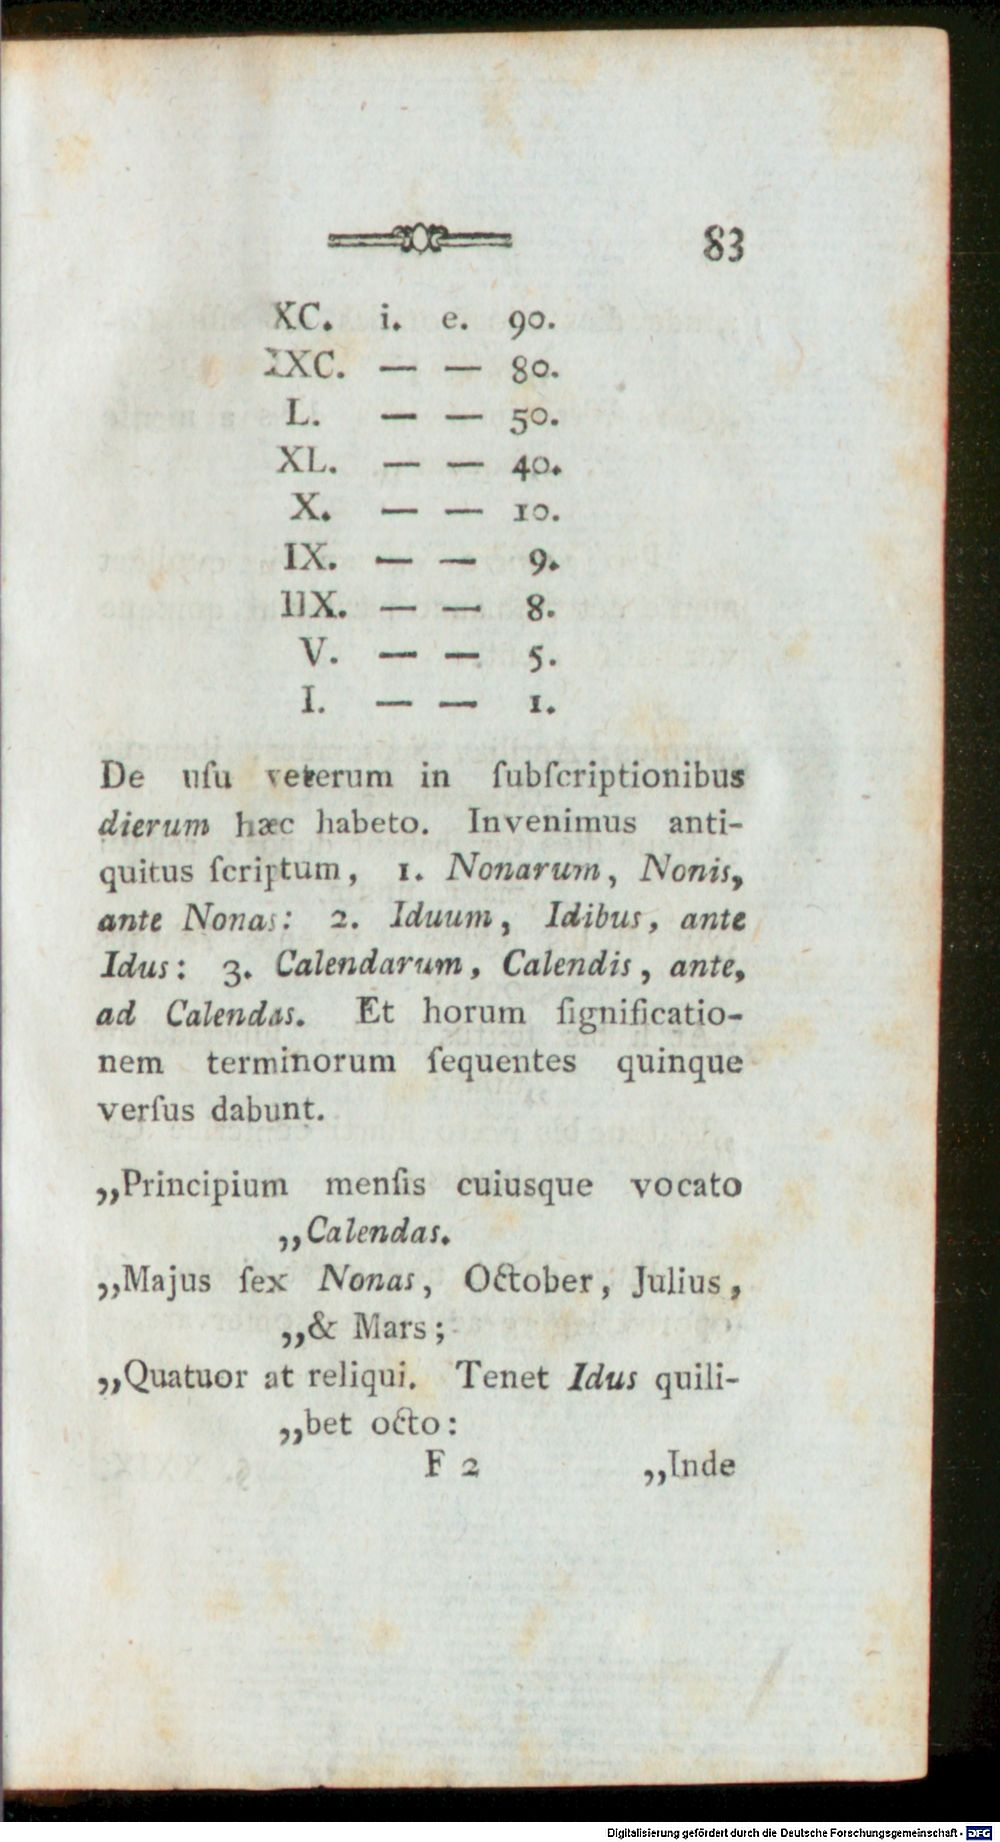 83
XC. i. e. 90.
XXC. — — 80.
L. — — 50.
XL. — — 40.
X. — — 10.
IX. — — 9.
IIX. — — 8.
V. — — 5.
I. — — 1.
De uſu veterum in ſubſcriptionibus
dierum hæc habeto. Invenimus anti-
quitus ſcriptum, 1. Nonarum, Nonis,
ante Nonas: 2. Iduum, Idibus, ante
Idus: 3. Calendarum, Calendis, ante,
ad Calendas. Et horum ſignificatio-
nem terminorum ſequentes quinque
verſus dabunt.
„Principium menſis cuiusque vocato
„Calendas.
„Majus ſex Nonas, October, Julius,
„& Mars;
„Quatuor at reliqui. Tenet Idus quili-
„bet octo:
F 2 „Inde
Digitalisierung gefördert durch die Deutsche Forschungsgemeinschaft - DFG